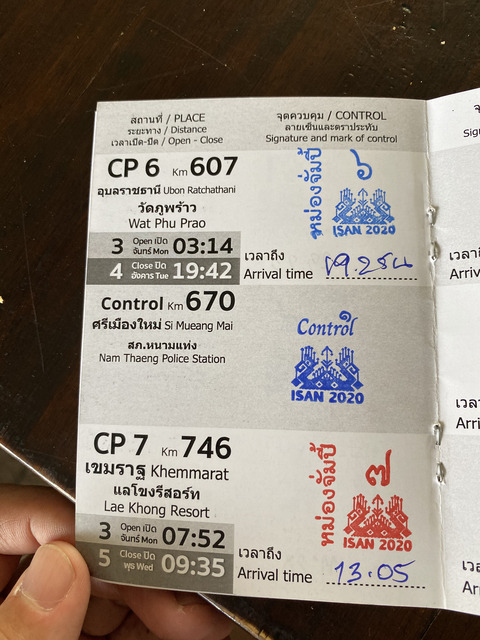 สถานที่ / PLACE
ระยะทาง / Distance
เวลาเปิด-ปิด / Open - Close
จุดควบคุม / CONTROL
ลายเซ็นและตราประทับ
Signature and mark of control
CP 6 Km 607
อุบลราชธานี Ubon Ratchathani
วัดภูพร้าว
Wat Phu Prao
3 Open เปิด จันทร์ Mon 03:14
4 Close ปิด อังคาร Tue 19:42
หม่องจัมปี้ ๖
ISAN 2020
เวลาถึง
Arrival time
Control Km 670
ศรีเมืองใหม่ Si Mueang Mai
สภ.หนามแท่ง
Nam Thaeng Police Station
Control
ISAN 2020
CP 7 Km 746
เขมราฐ Khemmarat
แลโขงรีสอร์ท
Lae Khong Resort
3 Open เปิด จันทร์ Mon 07:52
5 Close ปิด พุธ Wed 09:35
หม่องจัมปี้ ๗
ISAN 2020
เวลาถึง
Arrival time 13.05